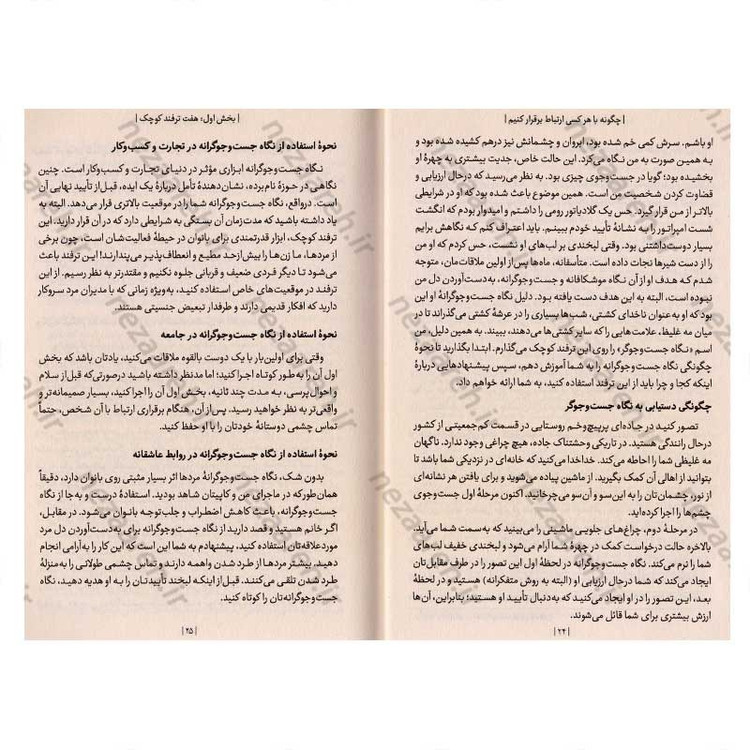 | چگونه با هر کسی ارتباط برقرار کنیم |
او باشم. سرش کمی خم شده بود، ابروان و چشمانش نیز درهم کشیده شده بود و
به همین صورت به من نگاه می‌کرد. این حالت خاص، جدیت بیشتری به چهرهٔ او
بخشیده بود؛ گویا در جست‌وجوی چیزی بود. به نظر می‌رسید که درحال ارزیابی و
قضاوت کردن شخصیت من است. همین موضوع باعث شده بود که او در شرایطی
بالاتر از من قرار گیرد. حس یک گلادیاتور رومی را داشتم و امیدوار بودم که انگشت
شست امپراتور را به نشانهٔ تأیید خودم ببینم. باید اعتراف کنم که نگاهش برایم
بسیار دوست‌داشتنی بود. وقتی لبخندی بر لب‌های او نشست، حس کردم که او من
را از دست شیرها نجات داده است. متأسفانه، ماه‌ها پس از اولین ملاقات‌مان، متوجه
شدم که هدف او از آن نگاه موشکافانه و جست‌وجوگرانه، به‌دست‌آوردن دل من
نبوده است، البته به این هدف دست یافته بود. دلیل نگاه جست‌وجوگرانهٔ او این
بود که او به‌عنوان ناخدای کشتی، شب‌های بسیاری را در عرشهٔ کشتی می‌گذراند تا در
میان مه غلیظ، علامت‌هایی را که سایر کشتی‌ها می‌دهند، ببیند. به همین دلیل، من
اسم «نگاه جست‌وجوگر» را روی این ترفند کوچک می‌گذارم. ابتدا بگذارید تا نحوهٔ
چگونگی نگاه جست‌وجوگرانه را به شما آموزش دهم، سپس پیشنهادهایی دربارهٔ
اینکه کجا و چرا باید از این ترفند استفاده کنید، به شما ارائه خواهم داد.
چگونگی دستیابی به نگاه جست‌وجوگر
تصور کنید در جاده‌ای پرپیچ‌وخم روستایی در قسمت کم‌جمعیتی از کشور
درحال رانندگی هستید. در تاریکی وحشتناک جاده، هیچ چراغی وجود ندارد. ناگهان
مه غلیظی شما را احاطه می‌کند. خداخدا می‌کنید که خانه‌ای در نزدیکی شما باشد تا
بتوانید از اهالی آن کمک بگیرید. از ماشین پیاده می‌شوید و برای یافتن هر نشانه‌ای
از نور، چشمان‌تان را به این‌سو و آن‌سو می‌چرخانید. اکنون مرحلهٔ اول جست‌وجوی
چشم‌ها را اجرا کرده‌اید.
در مرحلهٔ دوم، چراغ‌های جلویی ماشینی را می‌بینید که به‌سمت شما می‌آید.
بالاخره حالت درخواست کمک در چهرهٔ شما آرام می‌شود و لبخندی خفیف لب‌های
شما را نرم می‌کند. نگاه جست‌وجوگرانه در لحظهٔ اول این تصور را در طرف مقابل‌تان
ایجاد می‌کند که شما درحال ارزیابی او (البته به روش متفکرانه) هستید و در لحظهٔ
بعد، این تصور را در او ایجاد می‌کنید که به‌دنبال تأیید او هستید؛ بنابراین، آن‌ها
ارزش بیشتری برای شما قائل می‌شوند.
| ۲۴ |
| بخش اول: هفت ترفند کوچک |
نحوهٔ استفاده از نگاه جست‌وجوگرانه در تجارت و کسب‌وکار
نگاه جست‌وجوگرانه ابزاری مؤثر در دنیای تجارت و کسب‌وکار است. چنین
نگاهی در حوزهٔ نام‌برده، نشان‌دهندهٔ تأمل دربارهٔ یک ایده، قبل از تأیید نهایی آن
است. درواقع، نگاه جست‌وجوگرانه شما را در موقعیت بالاتری قرار می‌دهد. البته به
یاد داشته باشید که مدت‌زمان آن بستگی به شرایطی دارد که در آن قرار دارید. این
ترفند کوچک، ابزار قدرتمندی برای بانوان در حیطهٔ فعالیت‌شان است، چون برخی
از مردها، ما زن‌ها را بیش‌ازحد مطیع و انعطاف‌پذیر می‌پندارند! این ترفند باعث
می‌شود تا دیگر فردی ضعیف و قربانی جلوه نکنیم و مقتدرتر به نظر رسیم. از این
ترفند در موقعیت‌های خاص استفاده کنید، به‌ویژه زمانی که با مدیران مرد سروکار
دارید که افکار قدیمی دارند و طرفدار تبعیض جنسیتی هستند.
نحوهٔ استفاده از نگاه جست‌وجوگرانه در جامعه
وقتی برای اولین‌بار با یک دوست بالقوه ملاقات می‌کنید، یادتان باشد که بخش
اول آن را به‌طور کوتاه اجرا کنید؛ اما مدنظر داشته باشید درصورتی‌که قبل‌از سلام
و احوال‌پرسی، به مدت چند ثانیه، بخش اول آن را اجرا کنید، بسیار صمیمانه‌تر و
واقعی‌تر به نظر خواهید رسید. پس‌از آن، هنگام برقراری ارتباط با آن شخص، حتماً
تماس چشمی دوستانهٔ خودتان را با او حفظ کنید.
نحوهٔ استفاده از نگاه جست‌وجوگرانه در روابط عاشقانه
بدون شک، نگاه جست‌وجوگرانهٔ مردها اثر بسیار مثبتی روی بانوان دارد، دقیقاً
همان‌طورکه در ماجرای من و کاپیتان شاهد بودید. استفادهٔ درست و به‌جا از نگاه
جست‌وجوگرانه، باعث کاهش اضطراب و جلب توجه بانوان می‌شود. در مقابل،
اگر خانم هستید و قصد دارید از نگاه جست‌وجوگرانه برای به‌دست‌آوردن دل مرد
موردعلاقه‌تان استفاده کنید، پیشنهادم به شما این است که این کار را به‌آرامی انجام
دهید. بیشتر مردها از طرد شدن واهمه دارند و تماس چشمی طولانی را به‌منزلهٔ
طرد شدن تلقی می‌کنند. قبل‌از اینکه لبخند تأییدتان را به او هدیه دهید، نگاه
جست‌وجوگرانه‌تان را کوتاه کنید.
| ۲۵ |
nezaareh.ir